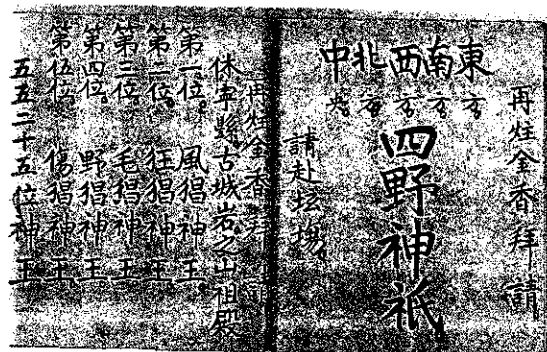 再炷金香拜請
東南西北中
方方方方央
四野神祇
請赴坛場
再炷金香拜請
休寧縣古城岩之山祖殿
第一位風猖神王
第二位狂猖神王
第三位毛猖神王
第四位野猖神王
第伍位傷猖神王
五五二十五位神王